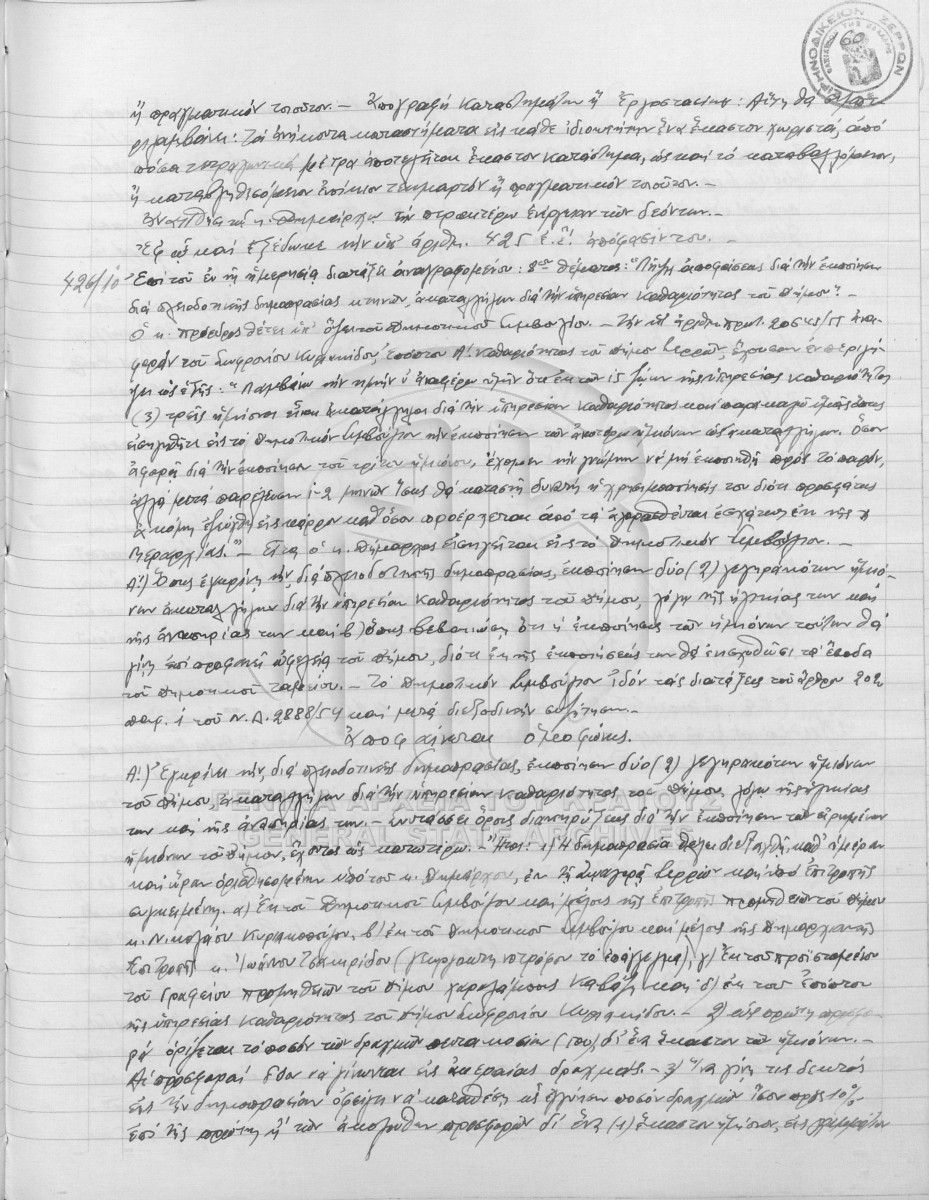 ΕΙΡΗΝΟΔΙΚΕΙΟΝ ΣΕΡΡΩΝ
ἤ πραγματικόν τοιοῦτον.- Ἀπογραφή Καταστημάτων ἤ Ἐργοστασίων: Αὕτη θά
: Τά ἀνήκοντα καταστήματα εἰς κάθε ἰδιοκτήτην ἕνα ἕκαστον χωριστά, ἀπό
πόσα τετραγωνικά μέτρα ἀποτελῆται ἕκαστον κατάστημα, ὡς καί τό καταβαλλόμενον,
ἤ καταβληθησόμενον ἐνοίκιον τεκμαρτόν ἤ πραγματικόν τοιοῦτον.-
Ἀναθέτει τῷ κ. Δημάρχῳ τήν περαιτέρω ἐνέργειαν τῶν δεόντων.-
Ἐφ' ᾧ καί ἐξέδωκε τήν ὑπ' ἀριθμ. 425 ἐ.ἔ. ἀπόφασίν του.-
426/10 Ἐπί τοῦ ἐν τῇ ἡμερησίᾳ διατάξει ἀναγραφομένου: 8ου θέματος: "Λῆψις ἀποφάσεως διά τήν ἐκποίησιν
διά πλειοδοτικῆς δημοπρασίας κτηνῶν, ἀκαταλλήλων διά τήν ὑπηρεσίαν Καθαριότητος τοῦ Δήμου".-
Ὁ κ. Πρόεδρος θέτει ὑπ' ὄψει τοῦ Δημοτικοῦ Συμβουλίου.- Τήν ὑπ' ἀριθμ. πρωτ. ἀνα-
φοράν τοῦ Σωφρονίου Κυριακίδου, ἐπόπτου Α! Καθαριότητος τοῦ Δήμου Σερρῶν, ἔχουσαν ἐν περιλή-
ψει ὡς ἑξῆς: "Λαμβάνω τήν τιμήν ν' ἀναφέρω ὑμῖν ὅτι ἐκ τῶν 15 ζώων τῆς ὑπηρεσίας Καθαριότητος
(3) τρεῖς ἡμίονοι εἶναι ἀκατάλληλοι διά τήν ὑπηρεσίαν Καθαριότητος καί παρακαλῶ ὑμᾶς ὅπως
εἰσηγηθῆτε εἰς τό Δημοτικόν Συμβούλιον τήν ἐκποίησιν τῶν ἀνωτέρω ἡμιόνων ὡς ἀκαταλλήλων. Ὅσον
ἀφορᾷ διά τήν ἐκποίησιν τοῦ τρίτου ἡμιόνου, ἔχομεν τήν γνώμην νά μή ἐκποιηθῇ πρός τό παρόν,
ἀλλά μετά παρέλευσιν 1-2 μηνῶν ἴσως θά καταστῇ δυνατή ἡ χρησιμοποίησίς του διότι προσφάτως
ἀκόμη ἐζεύχθη εἰς κάρρον καθ' ὅσον προέρχεται ἀπό τά ἀγορασθέντα ἐσχάτως ἐκ τῆς
Μεραρχίας."- Εἶτα ὁ κ. Δήμαρχος εἰσηγεῖται εἰς τό Δημοτικόν Συμβούλιον.-
Α!) Ὅπως ἐγκρίνῃ τήν διά πλειοδοτικῆς δημοπρασίας, ἐκποίησιν δύο (2) γεγηρακότων ἡμιό-
νων ἀκαταλλήλων διά τήν ὑπηρεσίαν Καθαριότητος τοῦ Δήμου, λόγῳ τῆς ἡλικίας των καί
τῆς ἀναπηρίας των καί β) ὅπως βεβαιώσῃ ὅτι ἡ ἐκποίησις τῶν ἡμιόνων τούτων θά
γίνῃ ἐπί προφανεῖ ὠφελείᾳ τοῦ Δήμου, διότι ἐκ τῆς ἐκποιήσεώς των θά ἐνισχυθῶσι τά ἔσοδα
τοῦ Δημοτικοῦ Ταμείου.- Τό Δημοτικόν Συμβούλιον ἰδόν τάς διατάξεις τοῦ ἄρθρου 202
παρ. 1 τοῦ Ν.Δ. 2888/54 καί μετά διεξοδικήν συζήτησιν.-
Ἀποφαίνεται ὁμοφώνως.
Α!) Ἐγκρίνει τήν, διά πλειοδοτικῆς δημοπρασίας, ἐκποίησιν δύο (2) γεγηρακότων ἡμιόνων
τοῦ Δήμου, ἀκαταλλήλων διά τήν ὑπηρεσίαν Καθαριότητος τοῦ Δήμου, λόγῳ τῆς ἡλικίας
ΓΕΝΙΚΑ ΑΡΧΕΙΑ ΤΟΥ ΚΡΑΤΟΥΣ
των καί τῆς ἀναπηρίας των.- Συντάσσει ὅρους διακηρύξεως διά τήν ἐκποίησιν τῶν εἰρημένων
GENERAL STATE ARCHIVES
ἡμιόνων τοῦ Δήμου, ἔχοντας ὡς κατωτέρω.- Ἤτοι: 1) Ἡ δημοπρασία θέλει διεξαχθῇ, καθ' ἡμέραν
καί ὥραν ὁρισθησομένην ὑπό τοῦ κ. Δημάρχου, ἐν τῇ Σερρῶν καί ὑπό Ἐπιτροπῆς
συγκειμένης. α) Ἐκ τοῦ Δημοτικοῦ Συμβούλου καί μέλους τῆς ἐπιτροπῆς προμηθειῶν τοῦ Δήμου
κ. Νικολάου , β) ἐκ τοῦ Δημοτικοῦ Συμβούλου καί μέλους τῆς Δημαρχιακῆς
Ἐπιτροπῆς κ. Ἰωάννου Τσακιρίδου (γεωργοκτηνοτρόφου τό ἐπάγγελμα), γ) ἐκ τοῦ προϊσταμένου
τοῦ Γραφείου προμηθειῶν τοῦ Δήμου Χαραλάμπους καί δ) ἐκ τοῦ ἐπόπτου
τῆς ὑπηρεσίας Καθαριότητος τοῦ Δήμου Σωφρονίου Κυριακίδου.- 2) πρώτη προσφο-
ρά ὁρίζεται τό ποσόν τῶν δραχμῶν πεντακοσίων (500) δι' ἕνα ἕκαστον τῶν ἡμιόνων.-
Αἱ προσφοραί δέον νά γίνωνται εἰς ἀκεραίας δραχμάς.- 3) Ἵνα γίνῃ τις δεκτός
εἰς τήν δημοπρασίαν ὀφείλει νά καταθέσῃ ὡς ἐγγύησιν ποσόν δραχμῶν ἴσον πρός 10%
ἐπί τῆς πρώτης ἤ τῶν ἀκολούθων προσφορῶν δι' ἕνα (1) ἕκαστον ἡμίονον, εἰς